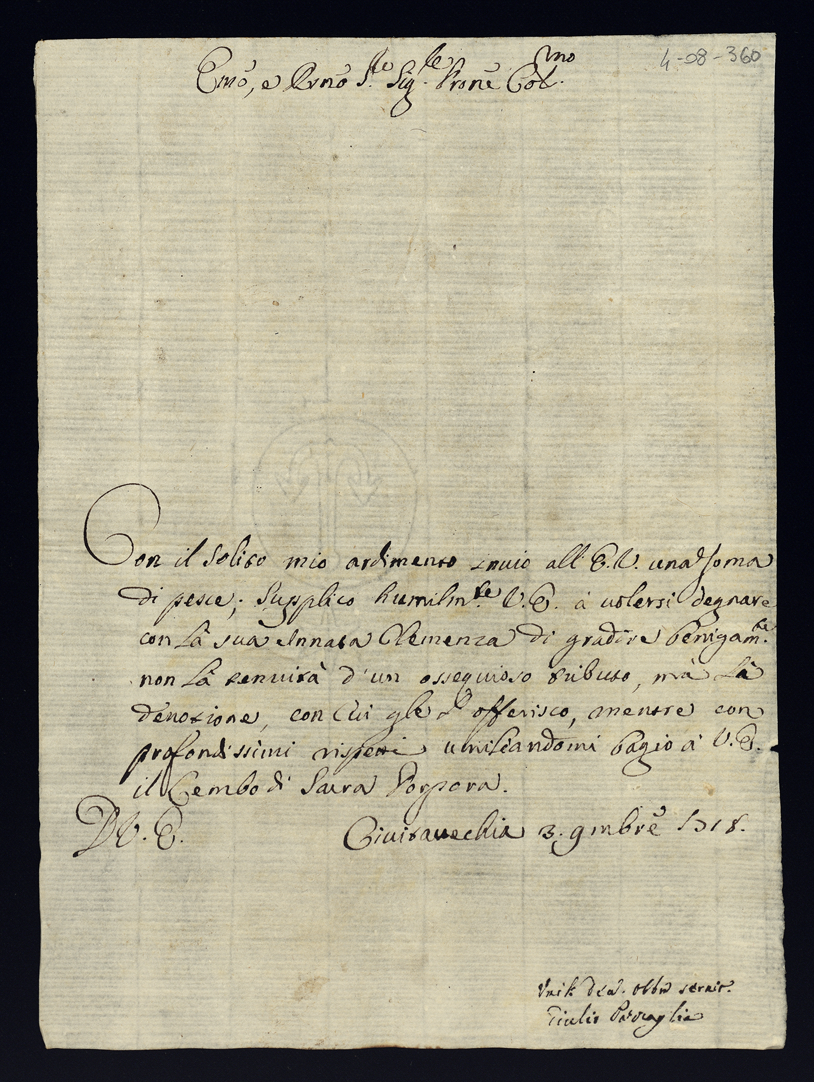 4-08-360
Emo, e Rmo S.re Sig.re Prone Col.mo
Con il solito mio ardimento inuio all' E.V. una soma
di pesce; supplico humilm.te V.E. à uolersi degnare
con la sua innata Clemenza di gradire benigam.te
non la tenuità d'un ossequioso tributo, mà la
deuozione, con cui gle l' offerisco, mentre con
profondissimi rispetti umiliandomi bagio à V.E.
il Lembo di Sacra Porpora.
D V. E. Ciuitauechia 3. 9mbrè 1718.
obbmo seruit.
Giulio